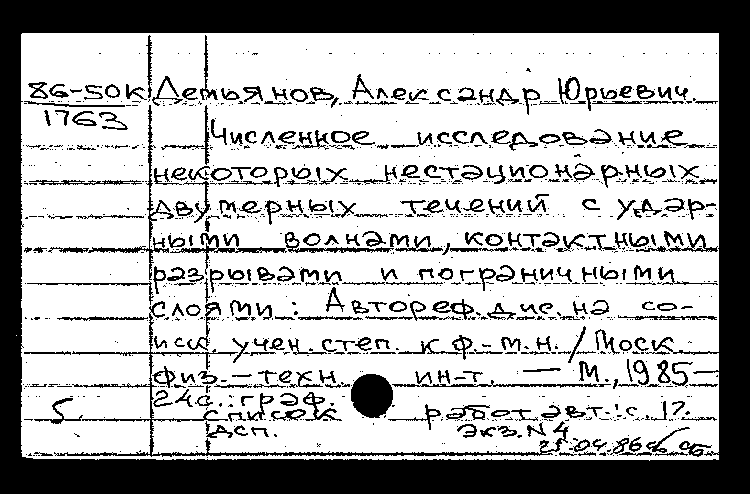 86-50К Демьянов, Александр Юрьевич.
1763
Численное исследование
некоторых нестационарных
двумерных течений с удар-
ными волнами, контактными
разрывами и пограничными
слоями: Автореф. дис. на со-
иск. учен. степ. к.ф.-м.н. / Моск.
физ.-техн. ин-т. — М., 1985 —
24с.: граф.
5. список работ авт.: с. 17.
дсп. экз. N4
25.04.86